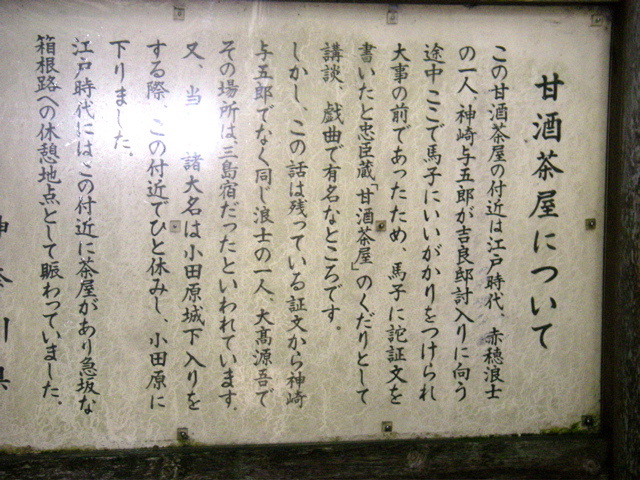 甘酒茶屋について
この甘酒茶屋の付近は江戸時代、赤穂浪士
の一人、神崎与五郎が吉良邸討入りに向う
途中 ここで馬子にいいがかりをつけられ
大事の前であったため、馬子に詑証文を
書いたと忠臣蔵「甘酒茶屋」のくだりとして
講談、戯曲で有名なところです。
しかし、この話は残っている証文から神崎
与五郎でなく同じ浪士の一人、大高源吾で
その場所は三島宿だったといわれています。
又、当 諸大名は小田原城下入りを
する際、この付近でひと休みし、小田原に
下りました。
江戸時代にはこの付近に茶屋があり急坂な
箱根路への休憩地点として賑わっていました。
神奈川県